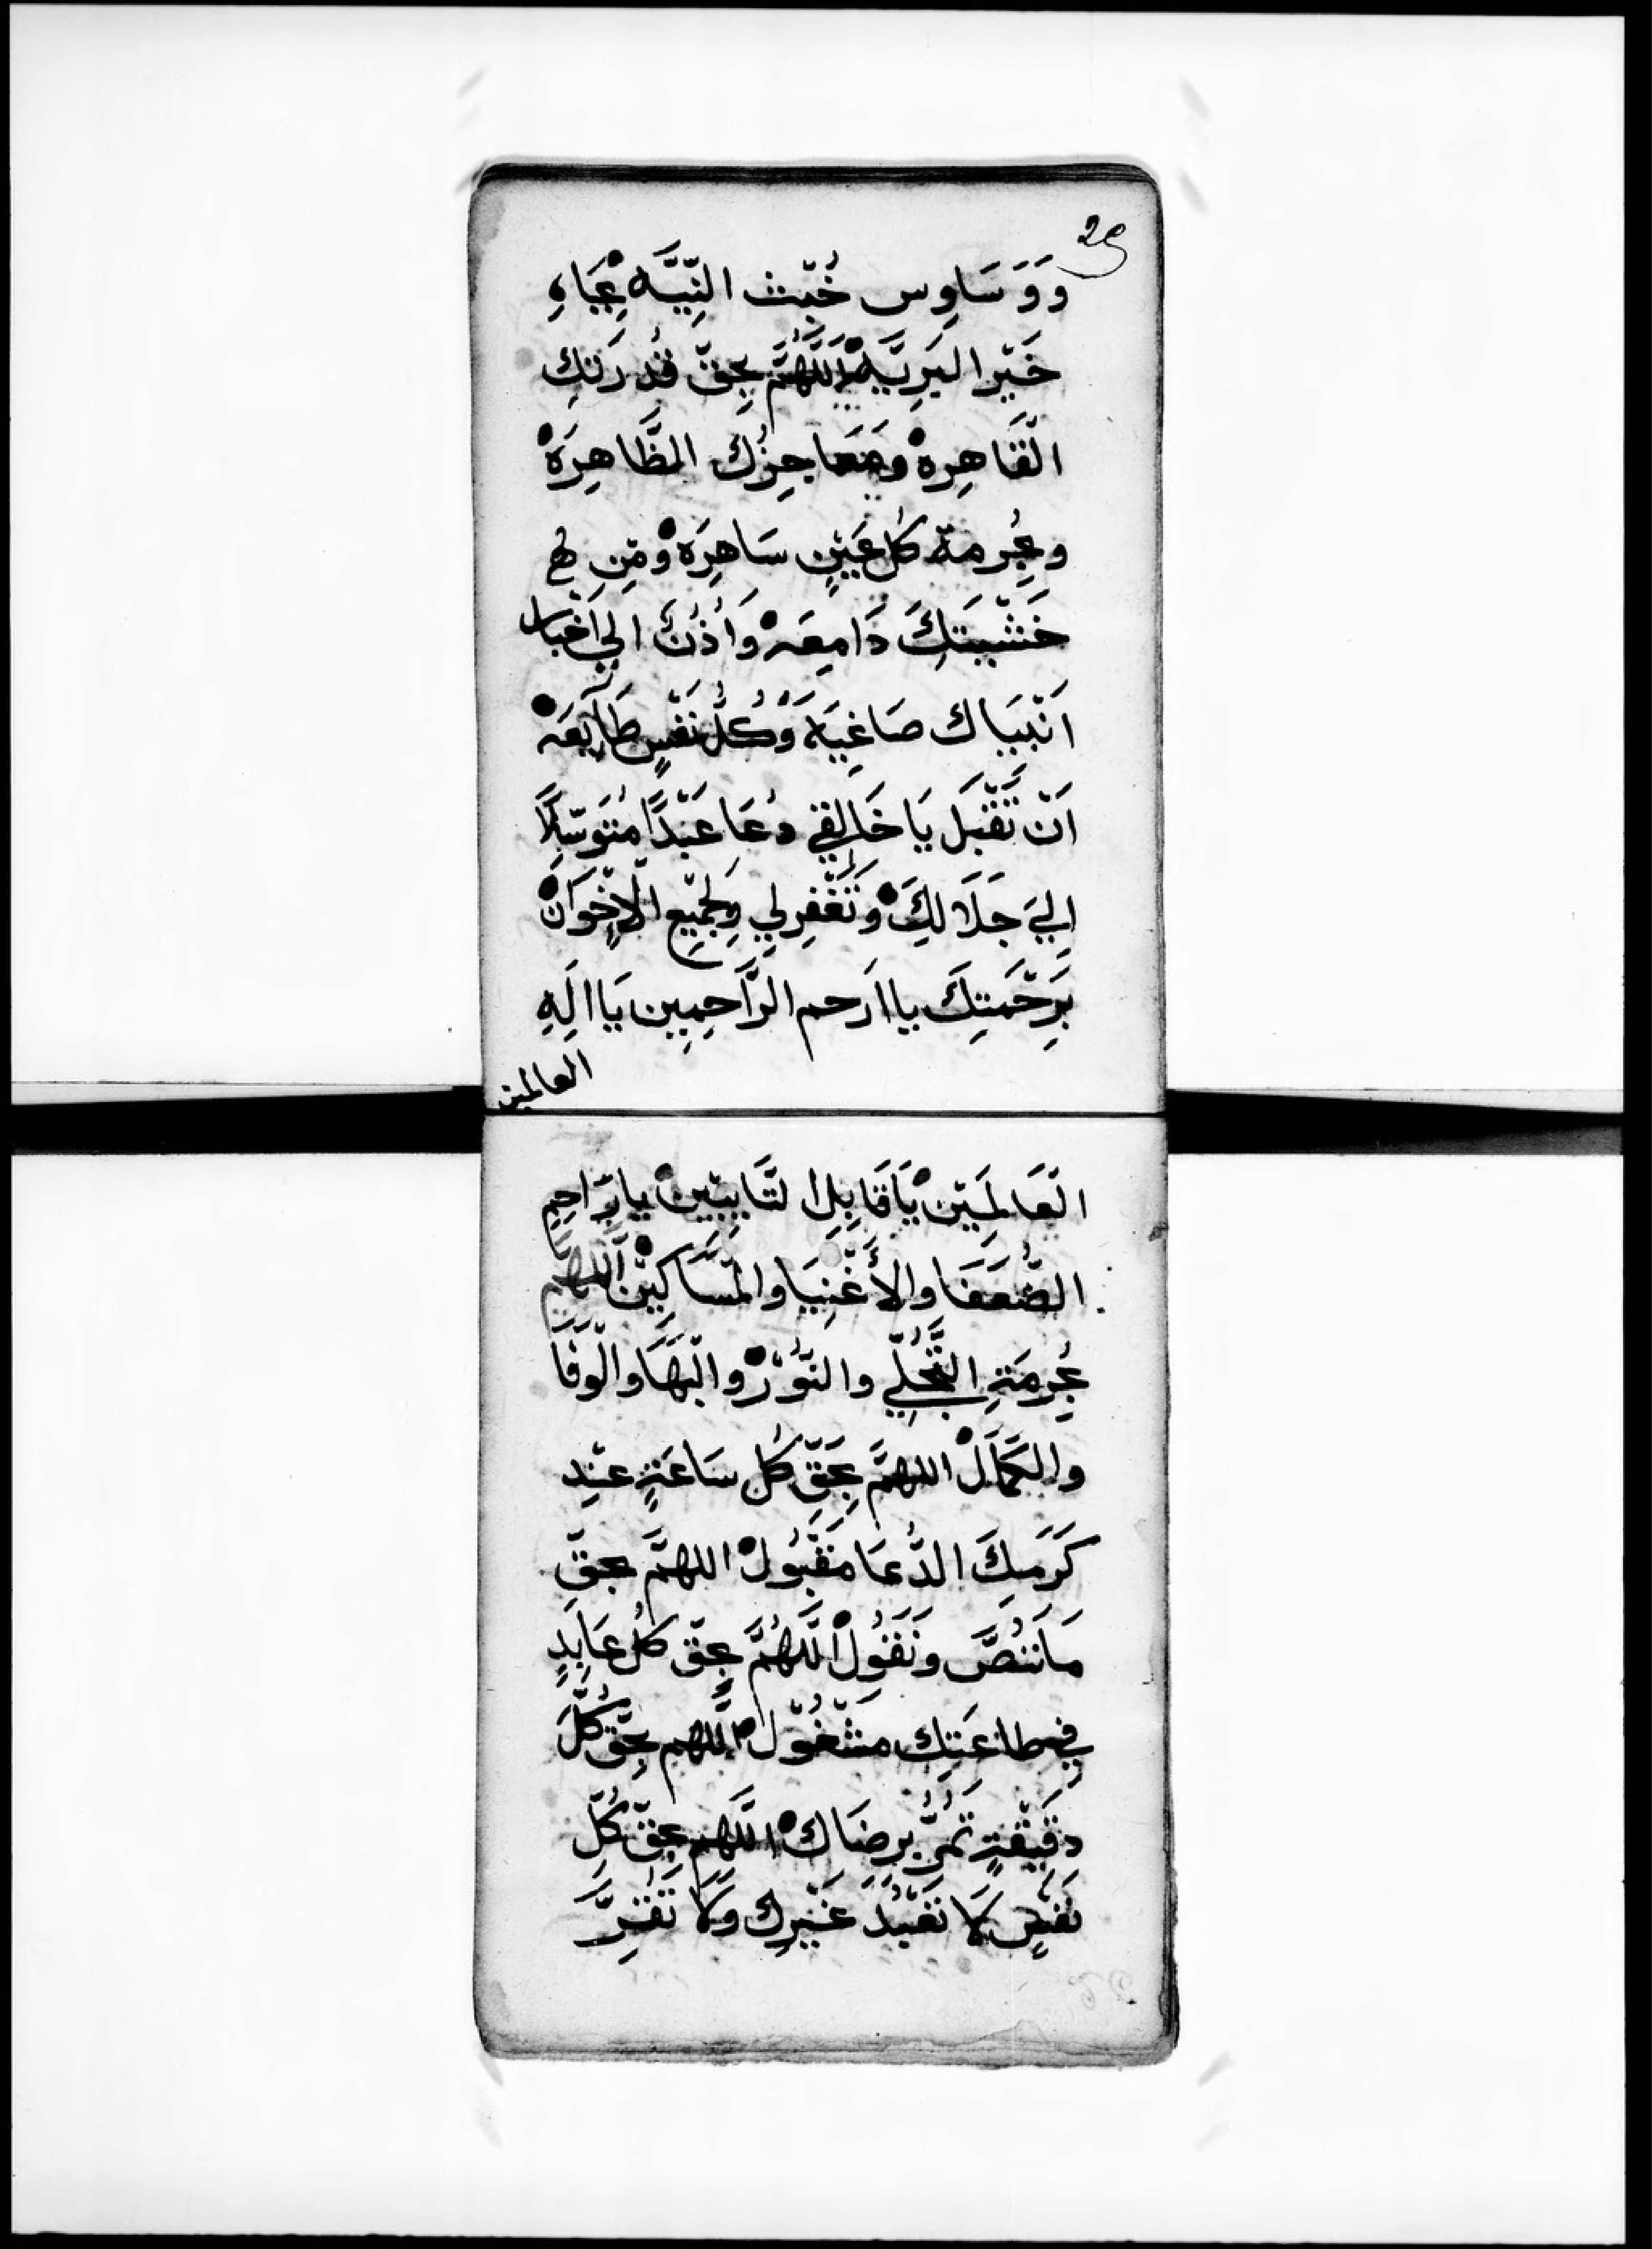 29
وَوَسَاوِس خُبْث النِّيَّه بِجَاهِ
خَيْر البَرِيَّه اَللَّهُمَّ بِحَقّ قُدْرَتِك
الْقَاهِرِه وَمَعَاجِزِك الظَّاهِرَه
وبِحُرمة كُل عَيْنٍ سَاهِرَه وَمِن
خَشْيِتَكَ دَامِعَه وَاُذُنٍ الي اَخْبار
اَنْبِيَاك صَاغِيَه وَكُلُّ نَفْسٍ طَايِعَه
اَنْ تَقْبَل يَا خَالِقِي دُعَا عَبْدًا مُتَوَسِّلًا
اِلَي جَلَالِكَ وَتَغْفِر لِي وَلِجَمِيعِ الْاِخْوَانْ
بِرَحْمَتِكَ يا ارَحم الرَّاحِمِين يَا اِلَهِ
العالمين
الْعَالَمِيْن يَا قَابِل التَّايِبِيْن يا رَاحِمِ
الضُّعَفَا والأَغْنِيَا والْمَسَاكِيْن اَللهم
بِحُرمَةِ التَّجَلِّي والنُّوْر والْبَهَا والْوَفَا
والكَمَالْ اللهمَّ بِحَقِّ كُل سَاعَةٍ عِنْد
كَرَمِكَ الدُّعَا مَقْبُولْ اللهمَّ بحقّ
مَا نَنُصَّ ونَقُولْ اَللَّهُمَّ بِحَقّ كُل عَابِدٍ
فِي طاعَتِك مَشْغُوْل اللَّهم بحَقّ كُلّ
دِقَيْقَةٍ تَمُرُّ بِرِضَاك اللَّهم بِحَقّ كُلِّ
نَفْسٍ لَا تَعْبُدُ غَيْرِك وَلَا تَقِرَّ